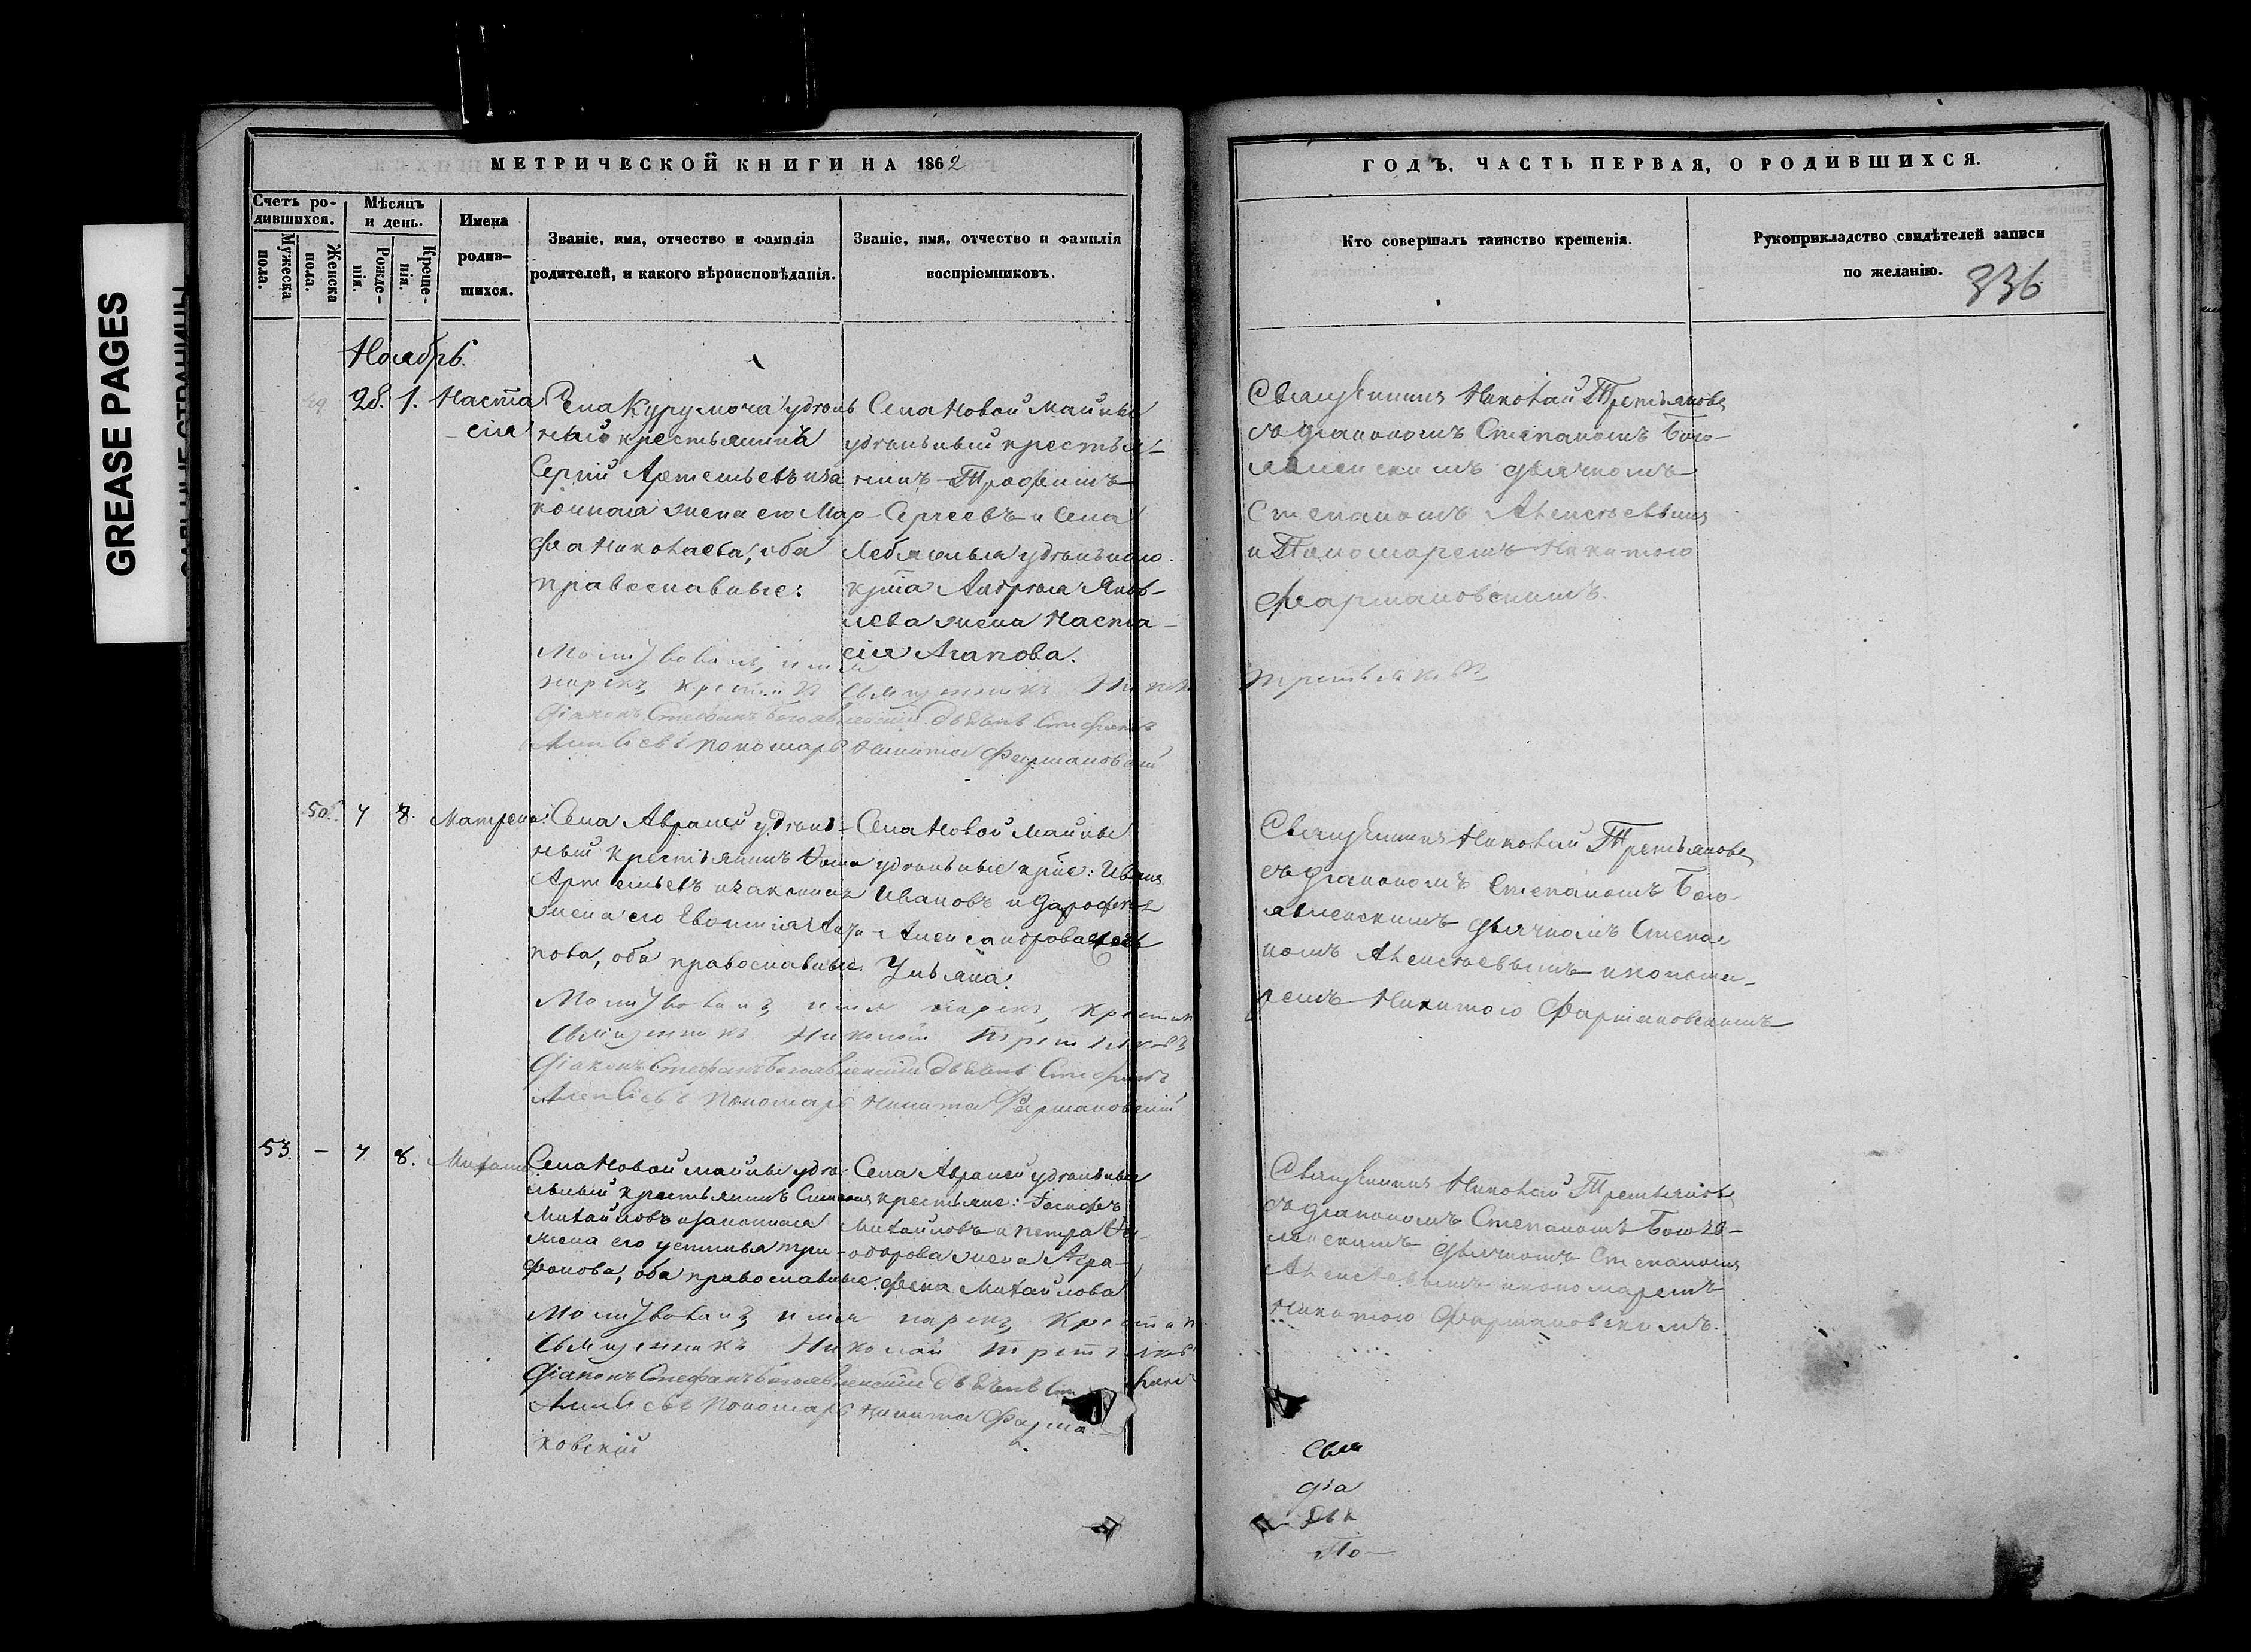 GREASE PAGES
МЕТРИЧЕСКОЙ КНИГИ НА 1862
Счетъ ро-
дившихся.
Мужеска
пола.
Женска
пола.
Мѣсяцъ
и день.
Рожде-
нія.
Креще-
нія.
Имена
родив-
шихся.
Званіе, имя, отчество и фамилія
родителей, и какого вѣроисповѣданія.
Званіе, имя, отчество и фамилія
воспріемниковъ.
Ноябрь.
49 28. 1. Настa
сія
Села Курумоча удѣль
ный крестьянинъ
Сергій Артемьевъ и за
конная жена его Мар
фа Николаева, оба
православные.
Села Новой Майны
удѣльный крестья-
нинъ Трофимъ
Сергеевъ и Села
удѣльнаго
крта Андрея Яков-
лева жена Наста-
сія Агапова.
Молитвовалъ, имя
нарекъ, крестилъ Священникъ Никол
Діаконъ Стефанъ Богоявленскій Дьячекъ Стефанъ
Алексѣевъ Пономарь Никита Фармаковскій
50. 7 8. Матрена
Села Авралей удѣль-
ный крестьянинъ Ѳома
Артемьевъ и законная
жена его Евдокія Ага
пова, оба православные.
Села Новой Майны
удѣльные крте: Иванъ
Ивановъ и Дарофея
Александрова
Ульяна.
Молитвовалъ, имя нарекъ, крестилъ
Священникъ Николай Третьяковъ
Діаконъ Стефанъ Богоявленскій Дьячекъ Стефанъ
Алексѣевъ Пономарь Никита Фармаковскій
53. - 7 8. Михаилъ
Села Новой Майны удѣ-
льный крестьянинъ Симеонъ
Михайловъ и законная
жена его Устинья Три-
фонова, оба православные.
Села Авралей удѣльные
крестьяне: Іосифъ
Михайловъ и Петра Ѳе-
одорова жена Агра-
фена Михайлова
Молитвовалъ, имя нарекъ, крестилъ
Священникъ Николай Третьяковъ
Діаконъ Стефанъ Богоявленскій Дьячекъ Сте фанъ
Алексѣевъ Пономарь Никита Фарма
ковскій
ГОДЪ, ЧАСТЬ ПЕРВАЯ, О РОДИВШИХСЯ.
Кто совершалъ таинство крещенія.
Рукоприкладство свидѣтелей записи
по желанію.
336
Священникъ Николай Третьяковъ
съ діакономъ Степаномъ Бого-
явленскимъ дьячкомъ
Степаномъ Алексѣевымъ
и Пономаремъ Никитою
Фармаковскимъ.
Третьяковъ
Священникъ Николай Третьяковъ
съ діакономъ Степаномъ Бого-
явленскимъ дьячкомъ Степа-
номъ Алексѣевымъ и понома-
ремъ Никитою Фармаковскимъ
Священникъ Николай Третьяковъ
съ діакономъ Степаномъ Богояв-
ленскимъ дьячкомъ Степаномъ
Алексѣевымъ и пономаремъ
Никитою Фармаковскимъ.
Свя
діа
Дья
По-